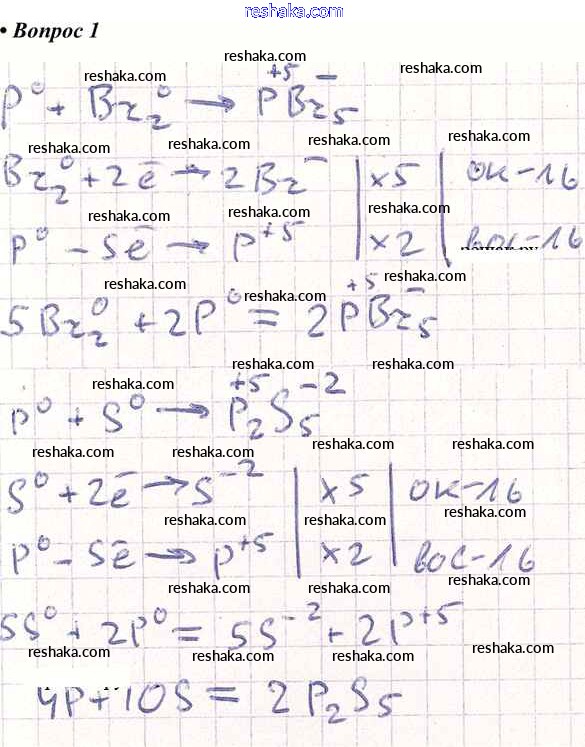 reshaka.com
• Вопрос 1
reshaka.com
reshaka.com reshaka.com
P⁰ + Br₂⁰ → P⁺⁵Br⁻₅
reshaka.com reshaka.com
reshaka.com reshaka.com
Br₂⁰ + 2ē → 2Br⁻ | ×5 | ок-ль
reshaka.com reshaka.com
P⁰ - 5ē → P⁺⁵ | ×2 | вос-ль
reshaka.com reshaka.com
reshaka.com
5Br₂⁰ + 2P⁰ = 2P⁺⁵Br⁻₅
reshaka.com reshaka.com
reshaka.com
P⁰ + S⁰ → P₂⁺⁵S₅⁻²
reshaka.com reshaka.com
reshaka.com reshaka.com
S⁰ + 2ē → S⁻² | ×5 | ок-ль
reshaka.com reshaka.com reshaka.com
P⁰ - 5ē → P⁺⁵ | ×2 | вос-ль
reshaka.com reshaka.com reshaka.com
5S⁰ + 2P⁰ = 5S⁻² + 2P⁺⁵
reshaka.com reshaka.com reshaka.com reshaka.com
4P + 10S = 2P₂S₅
reshaka.com reshaka.com reshaka.com